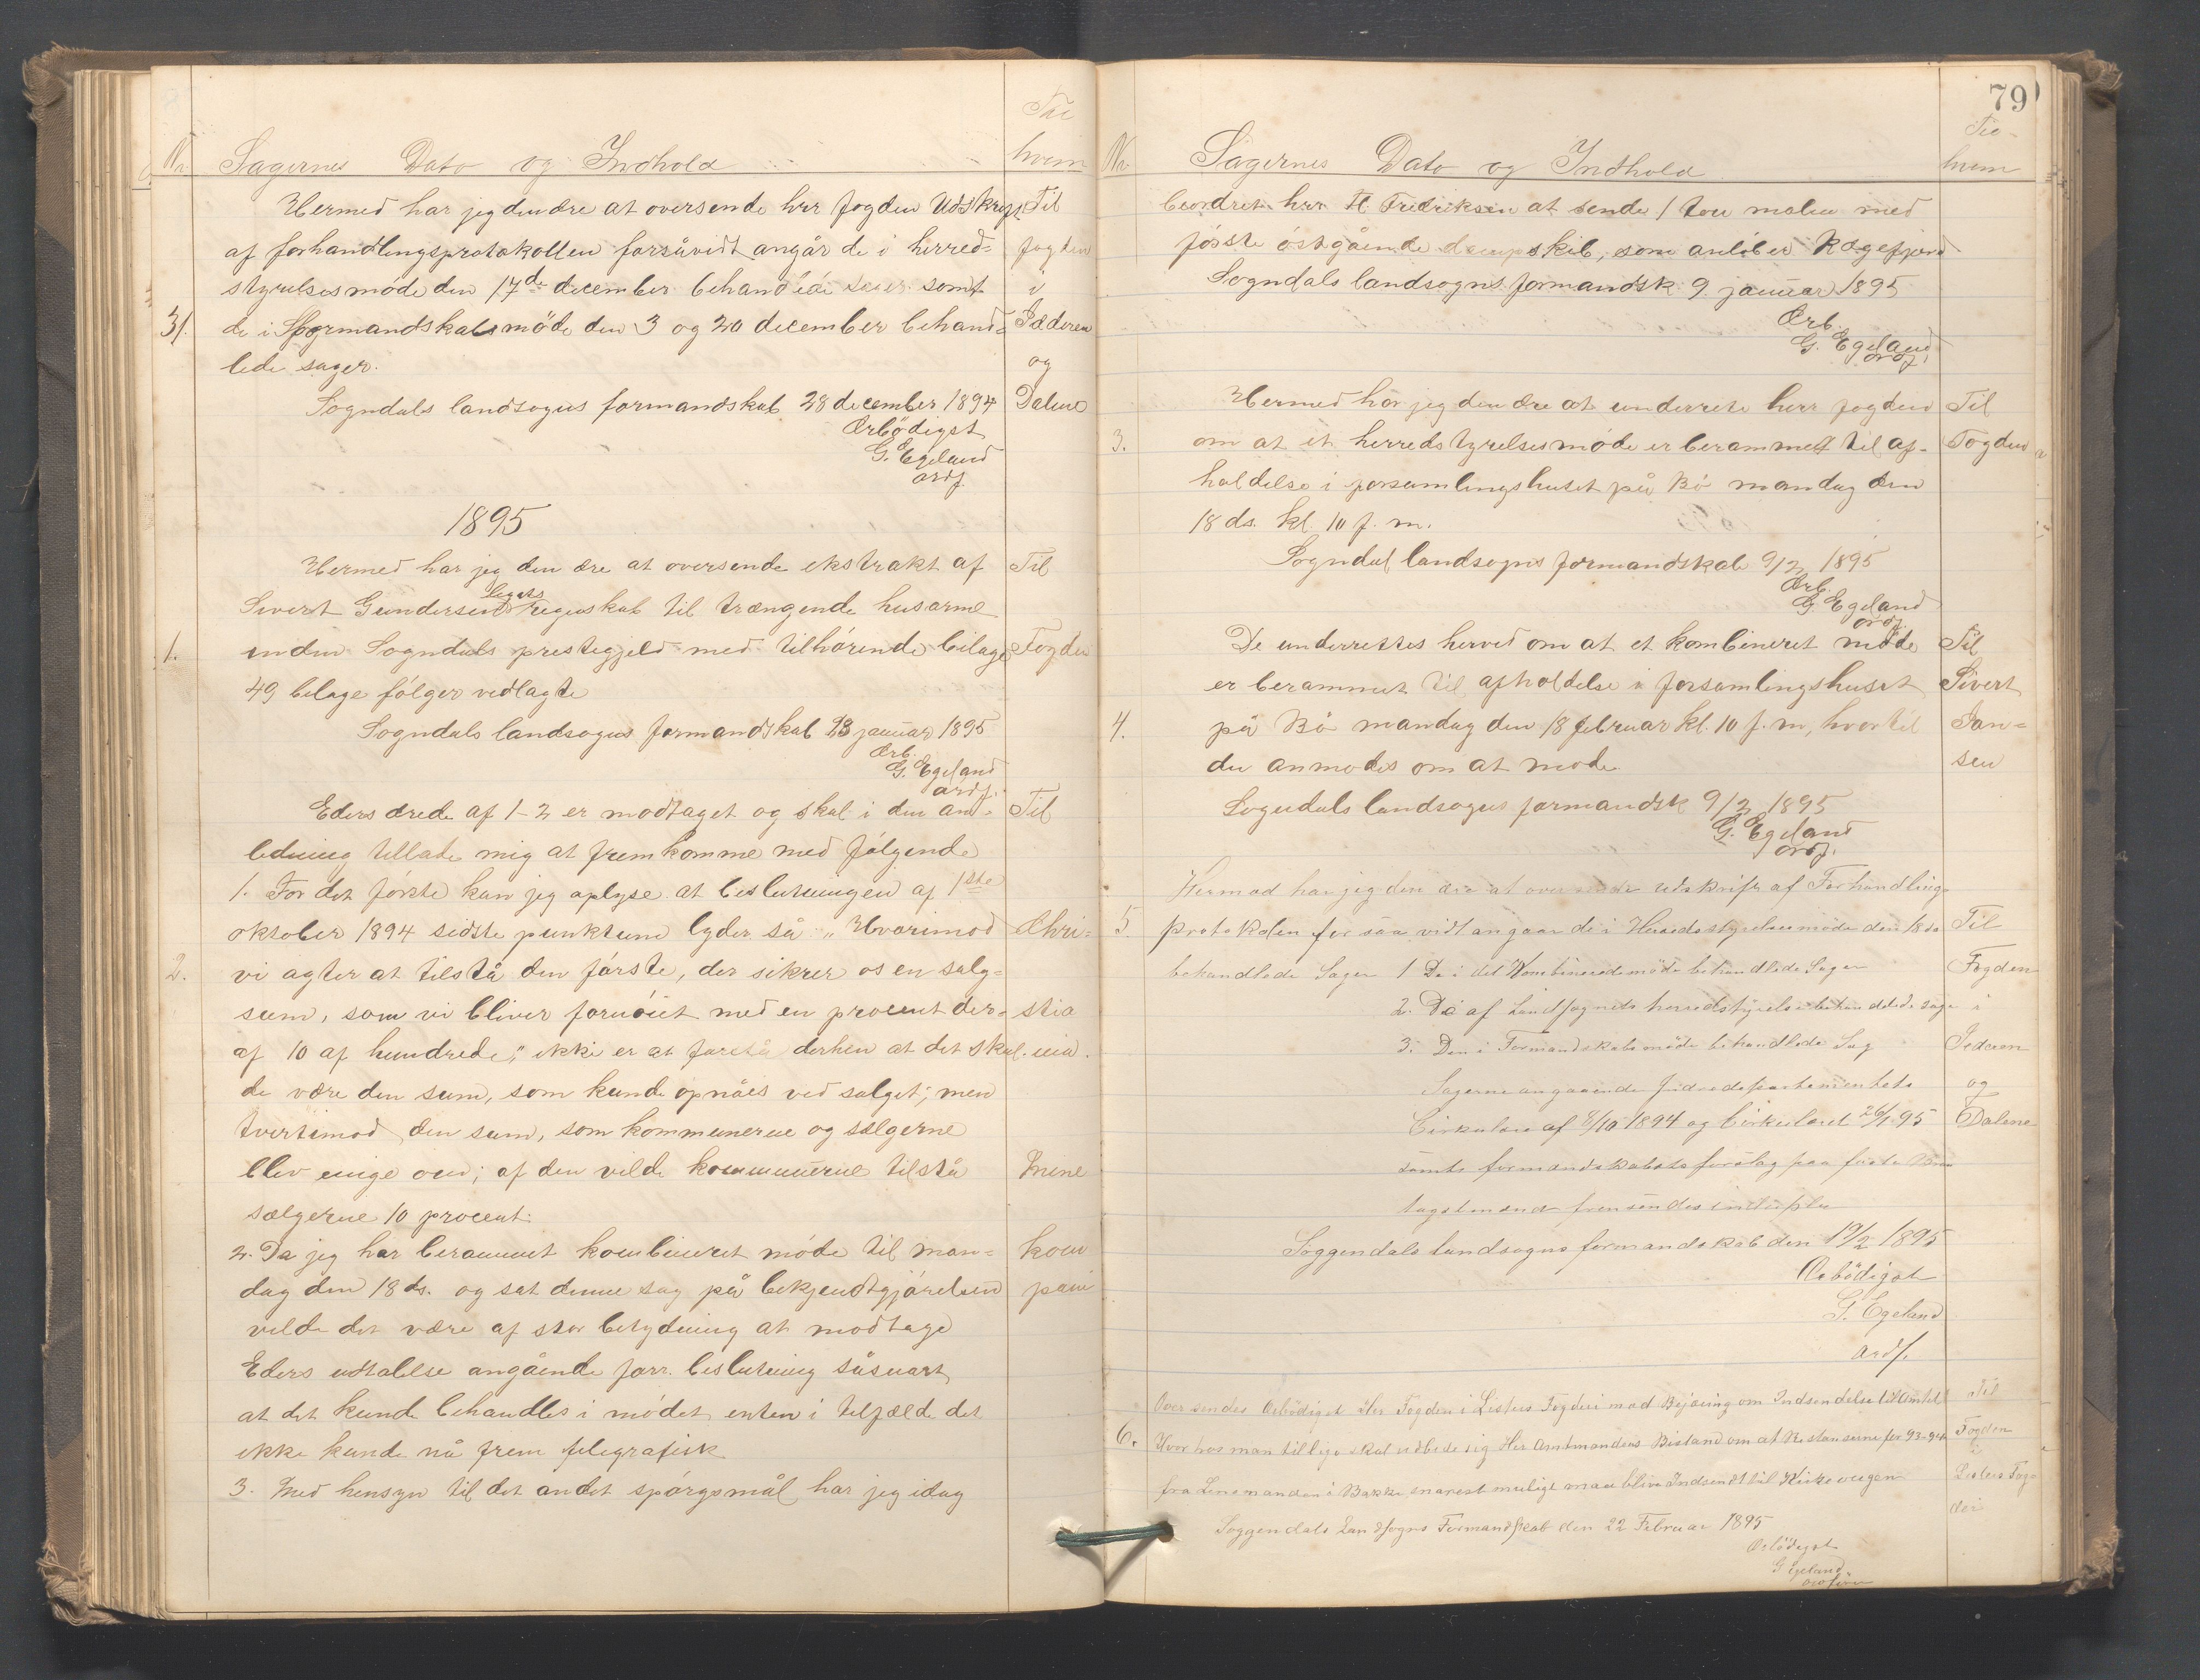 Til
Nr. Sagernes Dato og Indhold hvem
Hermed har jeg den ære at oversende hrr fogden Udskrift Til
af forhandlingsprotokollen forsåvidt angår de i herred= fogden
styrelsesmøde den 17de december behandlede sager samt i
31. de i Formandskabsmöde den 3 og 20 december behand= Jæderen
lede sager. og
Sogndals landsogns formandskab 28 december 1894 Dalene
Ærbödigst
G. Egeland
ordf.
1895
Hermed har jeg den ære at oversende ekstrakt af Til
Legats
Sivert Gundersens regnskab til trængende husarme
1. inden Sogndals prestegjeld med tilhörende bilage Fogden
49 bilage fölger vedlagte
Sogndals landsogns formandskab 23 januar 1895
Ærb.
G. Egeland
ordf.
Eders ærede af 1-2 er modtaget og skal i den an= Til
ledning tillade mig at fremkomme med fölgende
1. For det förste kan jeg oplyse at beslutningen af 1ste
oktober 1894 sidste punktum lyder så "Hvorimod Chri=
2. vi agter at tilstå den förste, der sikrer os en salg=
sum, som vi bliver fornöiet med en procent der= stia
af 10 af hundrede", ikke er at forstå derhen at det skul. nia.
de være den sum, som kunde opnåes ved salget; men
tvertimod den sum, som kommunerne og sælgerne
blev enige om; af den vilde kommunerne tilstå Mine
sælgerne 10 procent.
2. Da jeg har berammet kombineret möde til man= kom
dag den 18 ds. og sat denne sag på bekjendtgjörelsen pani
vilde det være af stor betydning at modtage
Eders udtalelse angående forr. beslutning såsnart
at det kunde behandles i mödet, enten i tilfælde det
ikke kunde nå frem telegrafisk
3. Med hensyn til det andet spörgsmål har jeg idag
79
Til
Nr. Sagernes Dato og Indhold hvem
beordret hrr H. Fredriksen at sende 1 ton malm med
förste östgående dampskib, som anlöber Rægefjord
Sogndals landsogns formandsk. 9. januar 1895
Ærb.
G. Egeland
ordf.
Hermed har jeg den ære at underrete herr fogden Til
3. om at et herredstyrelsesmöde er berammet til af- Fogden
holdelse i forsamlingshuset på Bö mandag den
18 ds. kl 10 f. m.
Sogndal landsogns formandskab 9/2 1895
Ærb.
G. Egeland
ordf.
De underrettes herved om at et kombineret möde Til
er berammet til afholdelse i forsamlingshuset Sivert
4. på Bö mandag den 18 februar kl. 10 f. m, hvortil Jan=
du anmodes om at möde. sen
Sogndals landsogns formandsk 9/2 1895
G. Egeland
ordf.
Hermed har jeg den ære at oversende udskrift af Forhandling-
5. protokolen for saavidt angaar de i Herredsstyrelsesmöde den 18 ds Til
behandlede Sager 1 De i det Kombinerede möde behandlede Sager Fogden
2. De af Landsognets herredstyrelse behandlede sager i
3. Den i Formandskabsmöde behandlede Sag Jederen
Sagerne angaaende Indredepartementets og
Cirkulære af 8/10 1894 og Cirkulæret 26/1 95 Dalene
samt formandskabets forslag paa
fremsendes in duplo
Soggendals landsogns formandskab den 19/2 1895
Ærbödigst
G. Egeland
ordf.
Oversendes Ærbödigst Hr Fogden i Listers Fogderi med Begjæring om Indsendelse til Amtet Til
6. Hvorhos man tillige skal udbede sig Hr Amtmandens Bistand om at Restanserne for 93-94 Fogden
i
fra Lensmanden i Bakke snarest muligt maa blive Indsendt til Listers Fog=
deri
Soggendals Landsogns Formandskab den 22 Februar 1895
Ærbödigst
G Egeland
ordförer